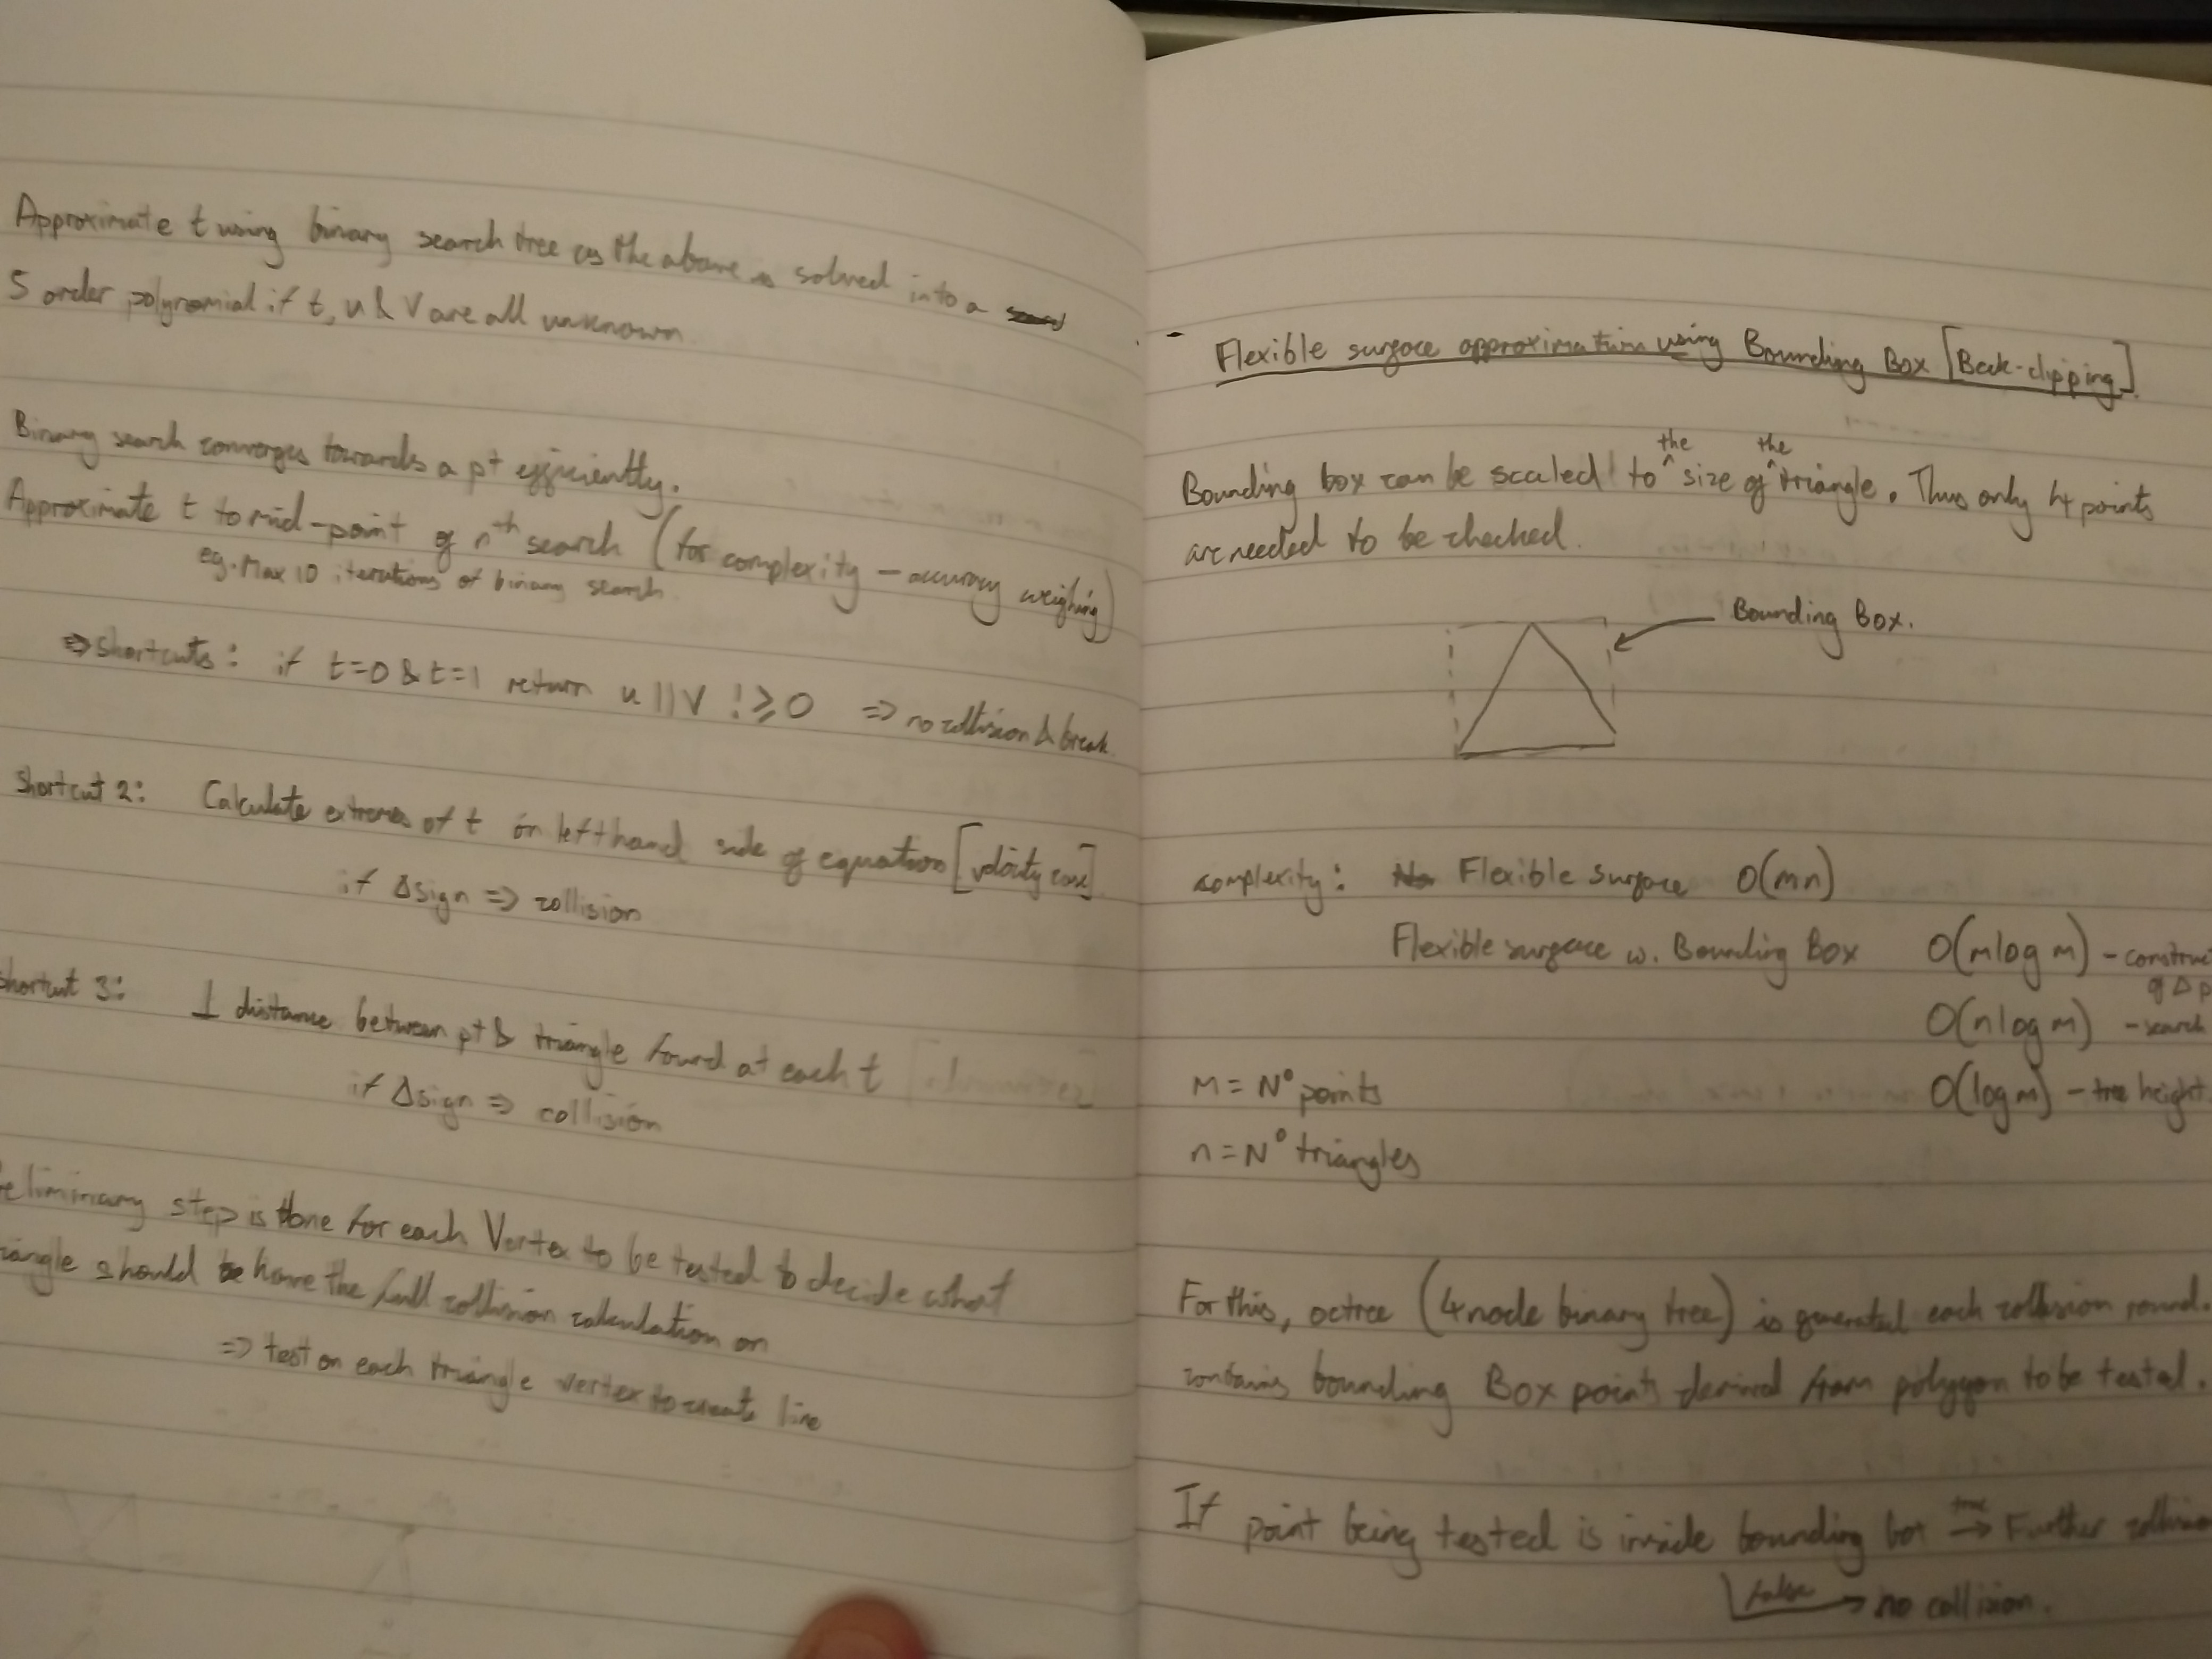 Approximate t using binary search tree as the above is solved into a
5 order polynomial if t, u & v are all unknown
Binary search converges towards a pt efficiently.
Approximate t to mid-point of nth search (for complexity - accuracy weighing)
eg. Max 10 iterations of binary search
⇒ shortcuts: if t=0 & t=1 return u || v !≥ 0 ⇒ no collision & break
Shortcut 2: Calculate extremes of t on left hand side of equation [velocity case]
if Δsign ⇒ collision
Shortcut 3: ⊥ distance between pt & triangle found at each t
if Δsign ⇒ collision
eliminary step is done for each Vertex to be tested to decide what
iangle should have the full collision calculation on
⇒ test on each triangle vertex to create line
- Flexible surface approximation using Bounding Box [Back-clipping]
Bounding box can be scaled to the size of the triangle. Thus only 4 points
are needed to be checked.
Bounding Box.
complexity: Flexible surface O(mn)
Flexible surface w. Bounding Box O(m log m) - construc
of Δ p
O(n log m) - search
M = Nº points O(log m) - tree height.
n = Nº triangles
For this, octree (4 node binary tree) is generated each collision round.
contains bounding Box points derived from polygon to be tested.
If point being tested is inside bounding box true → Further collision
false → no collision.